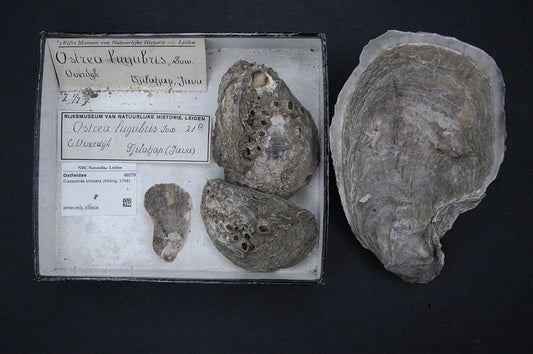 's Rijks Museum van Natuurlijke Historie — Leiden
Ostrea lugubris, Sow.
Overdijk
Tjilatjap, Java
RIJKSMUSEUM VAN NATUURLIJKE HISTORIE, LEIDEN
Ostrea lugubris Sow. 21a
C. Overdijk Tjilatjap (Java)
NBC Naturalis - Leiden
Ostreidae 60270
Crassostrea bilineata (Röding, 1798)
RMNH.MOL.